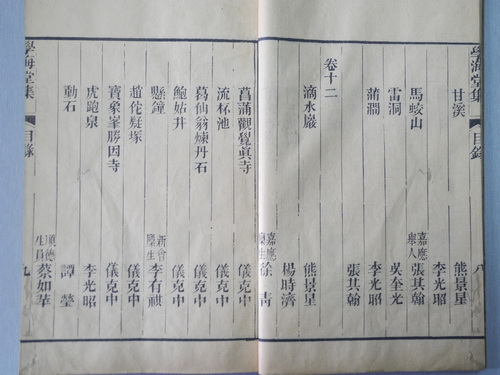 學海堂集 目錄 八
甘溪 熊景星
李光昭
馬蛟山 嘉應舉人 張其翰
雷洞 吳奎光
蒲澗 李光昭
張其翰
卷十二
滴水巖 熊景星
楊時濟
嘉應 徐青
菖蒲觀覺眞寺 儀克中
流杯池 儀克中
葛仙翁煉丹石 儀克中
鮑姑井 儀克中
懸鐘 新會 李有祺
趙佗疑塚 儀克中
寶象峯勝因寺 儀克中
虎跑泉 李光昭
動石 譚瑩
順德生員 蔡如苹
學海堂集 目錄 九